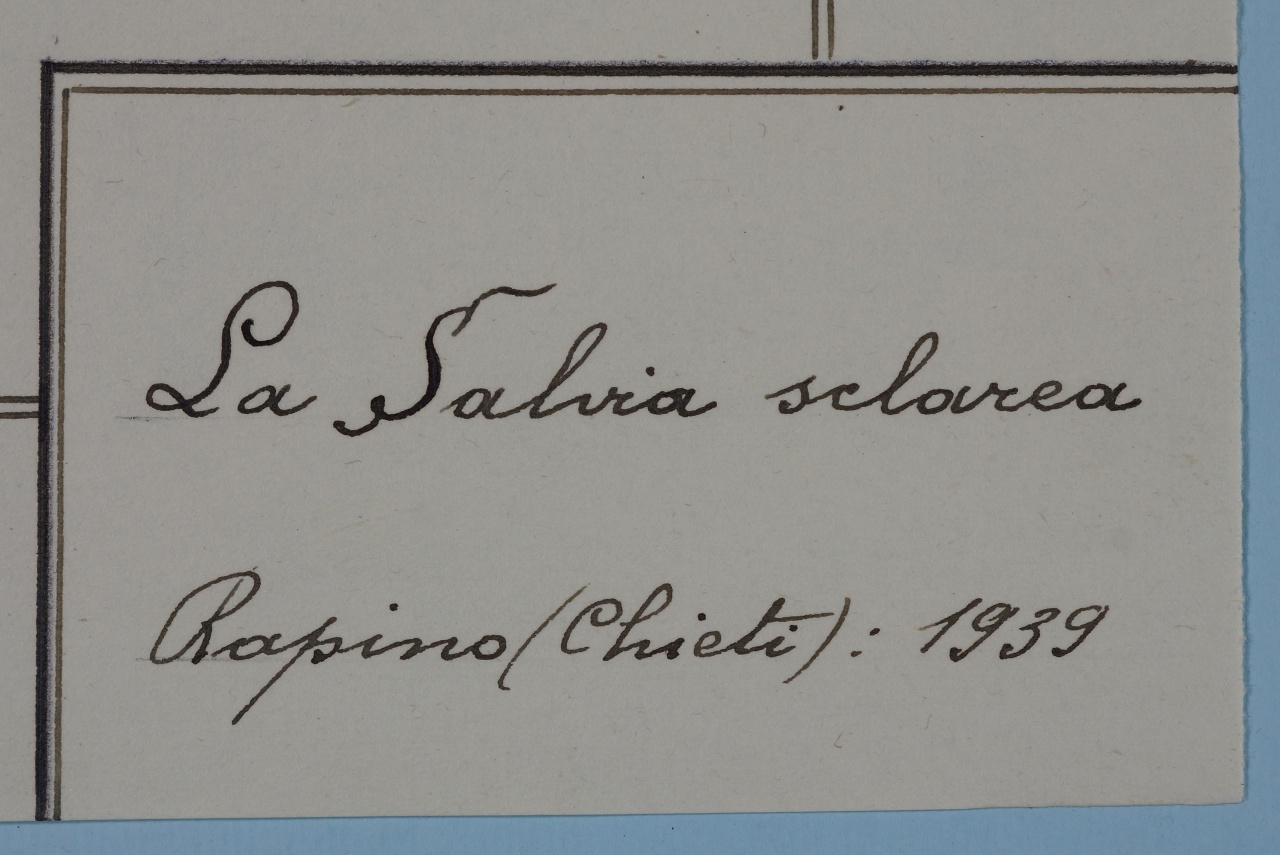 La Salvia sclarea
Rapino (Chieti): 1939